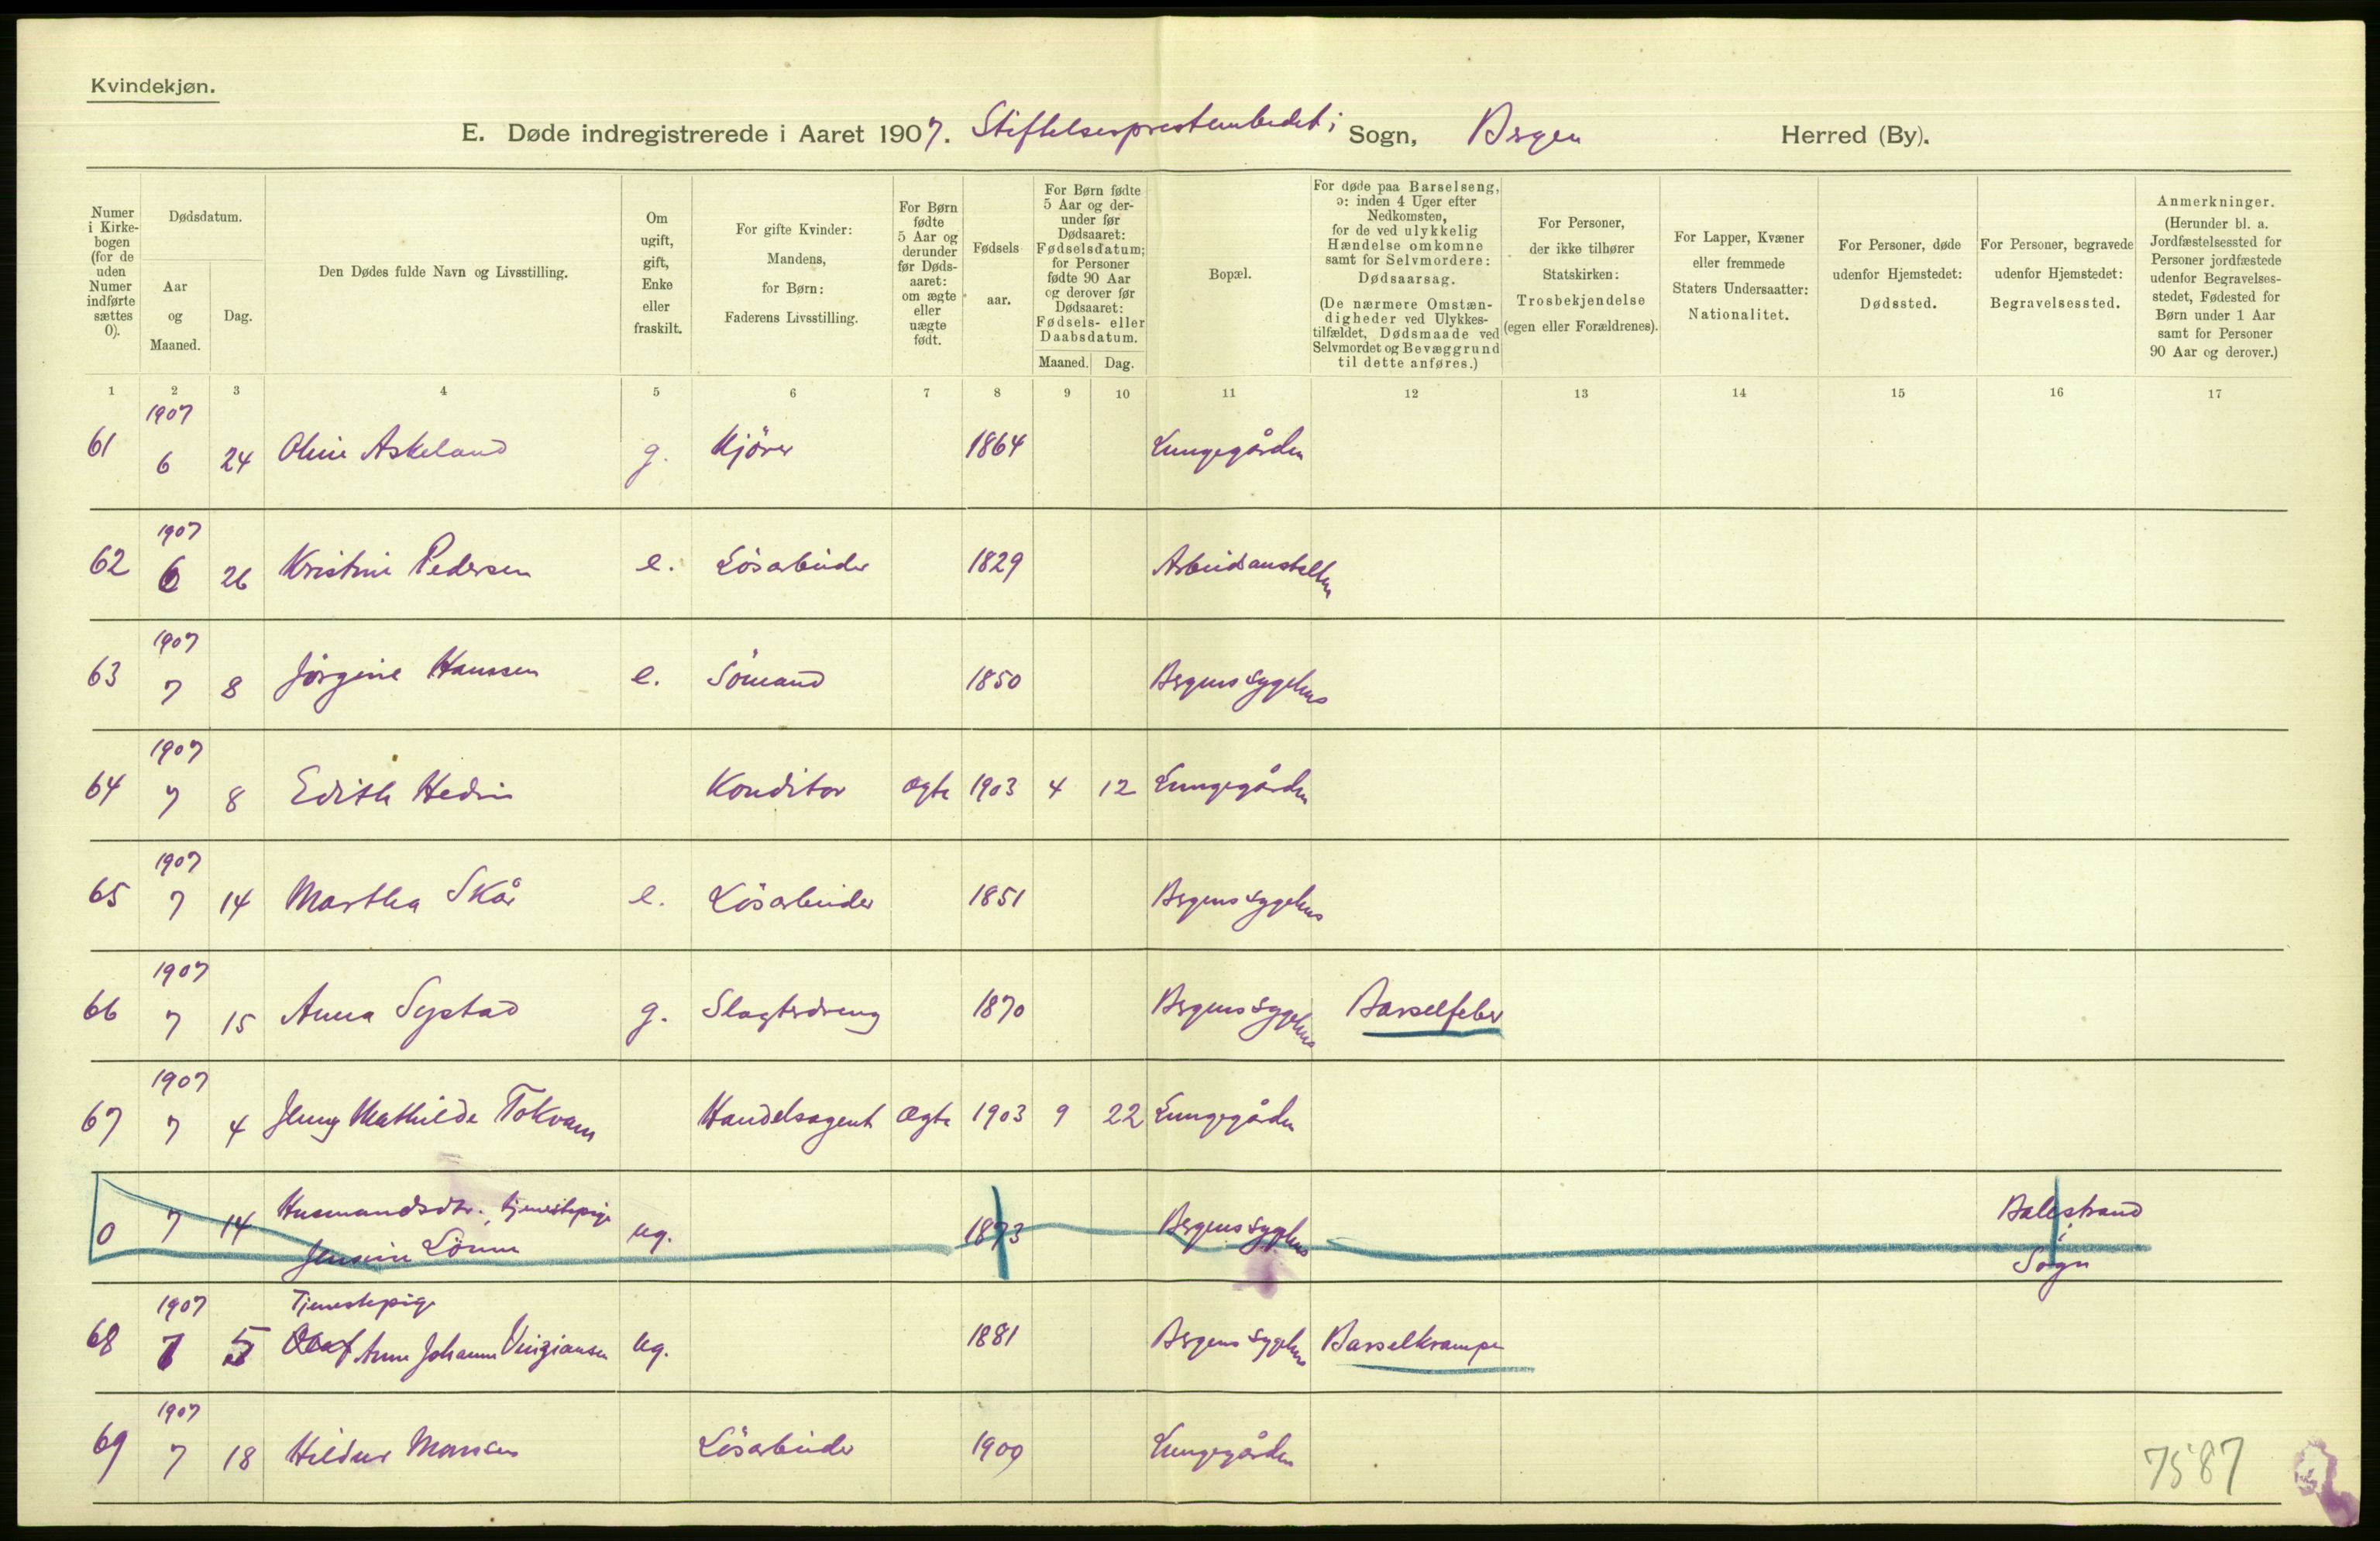 Kvindekjøn.
E. Døde indregistrerede i Aaret 1907. Stiftelsesprestembedet i Sogn, Bergen Herred (By).
Numer i Kirkebogen (for de uden Numer indførte sættes 0).
Dødsdatum.
Aar og Maaned.
Dag.
Den Dødes fulde Navn og Livsstilling.
Om ugift, gift, Enke eller fraskilt.
For gifte Kvinder: Mandens, for Børn: Faderens Livsstilling.
For Børn fødte 5 Aar og derunder før Dødsaaret: om ægte eller uægte født.
Fødselsaar.
For Børn fødte 5 Aar og derunder før Dødsaaret: Fødselsdatum; for Personer fødte 90 Aar og derover før Dødsaaret: Fødsels- eller Daabsdatum.
Maaned. Dag.
Bopæl.
For døde paa Barselseng, ɔ: inden 4 Uger efter Nedkomsten, for de ved ulykkelig Hændelse omkomne samt for Selvmordere: Dødsaarsag.
(De nærmere Omstændigheder ved Ulykkestilfældet, Dødsmaade ved Selvmordet og Bevæggrund til dette anføres.)
For Personer, der ikke tilhører Statskirken: Trosbekjendelse (egen eller Forældrenes).
For Lapper, Kvæner eller fremmede Staters Undersaatter: Nationalitet.
For Personer, døde udenfor Hjemstedet: Dødssted.
For Personer, begravede udenfor Hjemstedet: Begravelsessted.
Anmerkninger.
(Herunder bl. a. Jordfæstelsessted for Personer jordfæstede udenfor Begravelsesstedet, Fødested for Børn under 1 Aar samt for Personer 90 Aar og derover.)
1 2 3 4 5 6 7 8 9 10 11 12 13 14 15 16 17
1907
61 6 24 Oline Askeland g. Kjører 1864 Lungegården
1907
62 6 26 Kristine Pedersen e. Løsarbeider 1829 Arbeidsanstalten
1907
63 7 8 Jörgine Hanssen e. Sömand 1850 Bergens Sygehus
1907
64 7 8 Edith Hedin Konditor ægte 1903 4 12 Lungegården
1907
65 7 14 Martha Skår e. Lösarbeider 1851 Bergens Sygehus
1907
66 7 15 Anna Systad g. Slagterdreng 1870 Bergens Sygehus Barselfeber
1907
67 7 4 Jenny Mathilde Tokvam Handelsagent ægte 1903 9 22 Lungegården
0 7 14 Husmandsdtr. tjenestepige ug. 1873 Bergens Sygehus Balestrand
Jensine Lönne i Sogn
1907 Tjenestepige
68 7 5 Anna Johanna ug. 1881 Bergens Sygehus Barselkrampe
1907
69 7 18 Hildur Monsen Lösarbeider 1900 Lungegården
7587